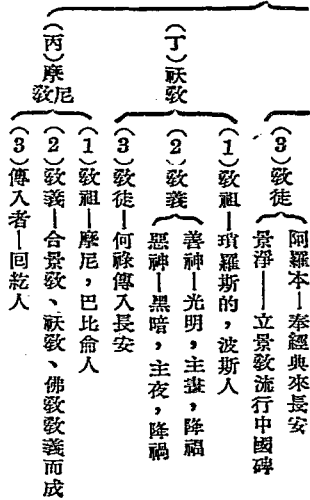 (3)敎徒
阿羅本—奉經典來長安
景淨——立景敎流行中國碑
(丁)祆敎
(1)敎祖—瑣羅斯的，波斯人
(2)敎義
善神—光明，主晝，降福
惡神—黑暗，主夜，降禍
(3)敎徒—何祿傳入長安
(丙)摩尼敎
(1)敎祖—摩尼，巴比侖人
(2)敎義—合景敎、祆敎、佛敎敎義而成
(3)傳入者—回紇人